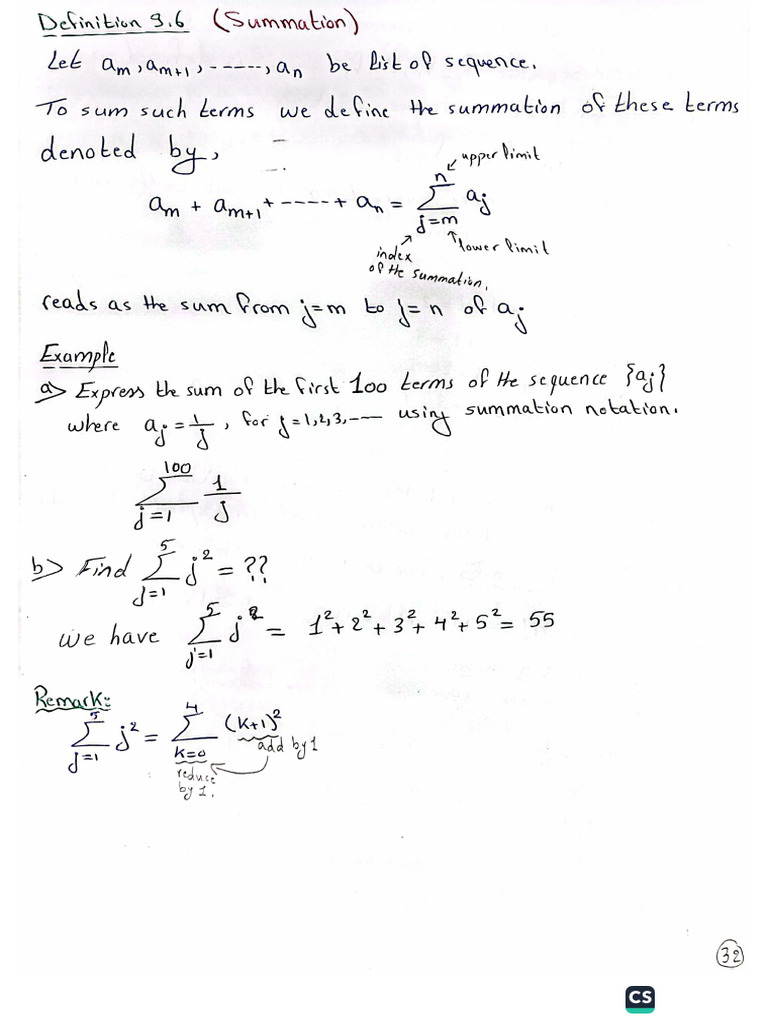 Definition 9.6 (Summation)
Let aₘ, aₘ₊₁, -----, aₙ be list of sequence.
To sum such terms we define the summation of these terms
denoted by,
upper limit
aₘ + aₘ₊₁ + ----- + aₙ = ∑_{j=m}^{n} aⱼ
lower limit
index
of the summation.
reads as the sum from j=m to j=n of aⱼ
Example
a> Express the sum of the first 100 terms of the sequence {aⱼ}
where aⱼ = 1/j, for j=1,2,3,---- using summation notation.
∑_{j=1}^{100} 1/j
b> Find ∑_{j=1}^{5} j² = ??
we have ∑_{j=1}^{5} j² = 1²+2²+3²+4²+5² = 55
Remark:
∑_{j=1}^{5} j² = ∑_{k=0}^{4} (k+1)²
add by 1
reduce
by 1.
32
CS